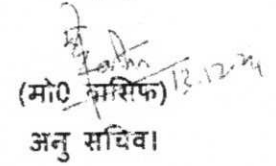 13.12.24
(मो0 वासिफ)
अनु सचिव।